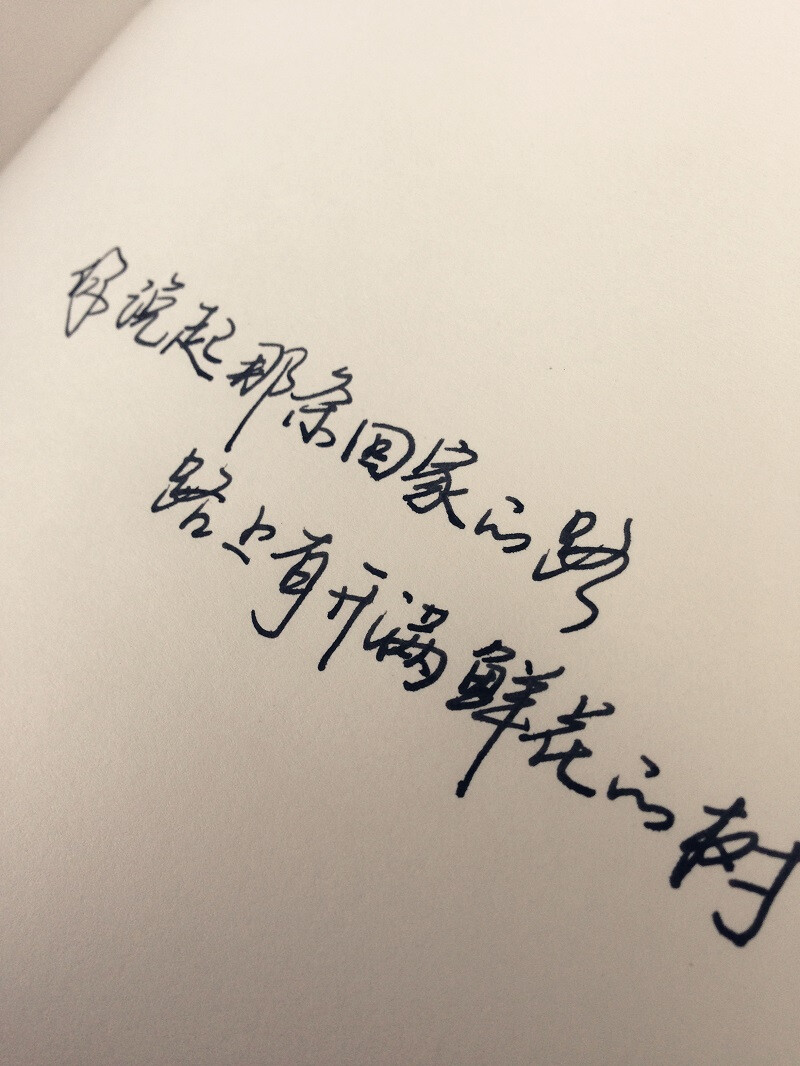 说起那条回家的路
路上有开满鲜花的树